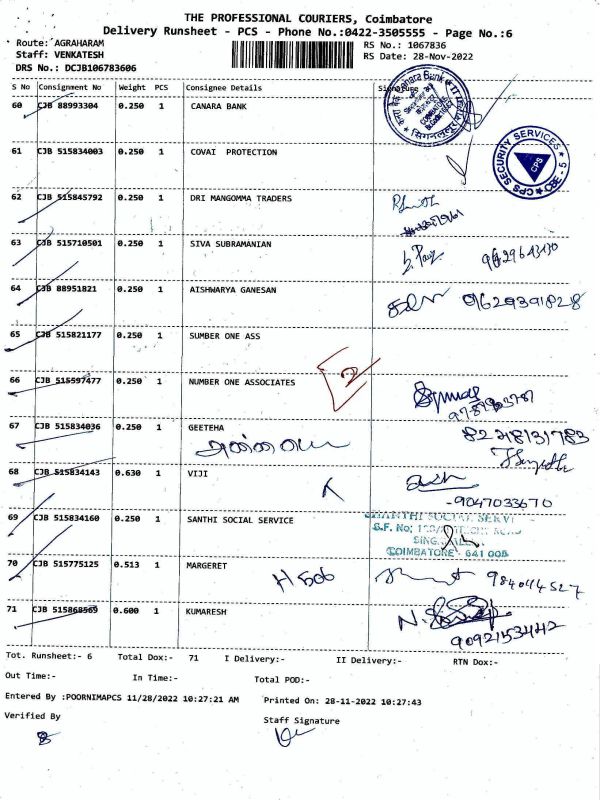 THE PROFESSIONAL COURIERS, Coimbatore
Delivery Runsheet - PCS - Phone No.:0422-3505555 - Page No.:6
Route: AGRAHARAM
RS No.: 1067836
Staff: VENKATESH
RS Date: 28-Nov-2022
DRS No.: DCJB106783606
S No Consignment No Weight PCS Consignee Details Signature
60 CJB 88993304 0.250 1 CANARA BANK
61 CJB 515834003 0.250 1 COVAI PROTECTION
CPS SECURITY SERVICES CBE - 5
CPS
62 CJB 515845792 0.250 1 DRI MANGOMMA TRADERS
63 CJB 515710501 0.250 1 SIVA SUBRAMANIAN
64 CJB 88951821 0.250 1 AISHWARYA GANESAN
9629391828
65 CJB 515821177 0.250 1 SUMBER ONE ASS
2
66 CJB 515597477 0.250 1 NUMBER ONE ASSOCIATES
67 CJB 515834036 0.250 1 GEETEHA
8228131783
68 CJB 515834143 0.630 1 VIJI
-9047033670
69 CJB 515834160 0.250 1 SANTHI SOCIAL SERVICE
SHANTHI SOCIAL SERVI
S.F. No:
SING
COIMBATORE - 641 005
70 CJB 515775125 0.513 1 MARGERET
H 506
984044527
71 CJB 515868569 0.600 1 KUMARESH
9092153442
Tot. Runsheet:- 6 Total Dox:- 71 I Delivery:- II Delivery:- RTN Dox:-
Out Time:- In Time:- Total POD:-
Entered By :POORNIMAPCS 11/28/2022 10:27:21 AM Printed On: 28-11-2022 10:27:43
Verified By
Staff Signature